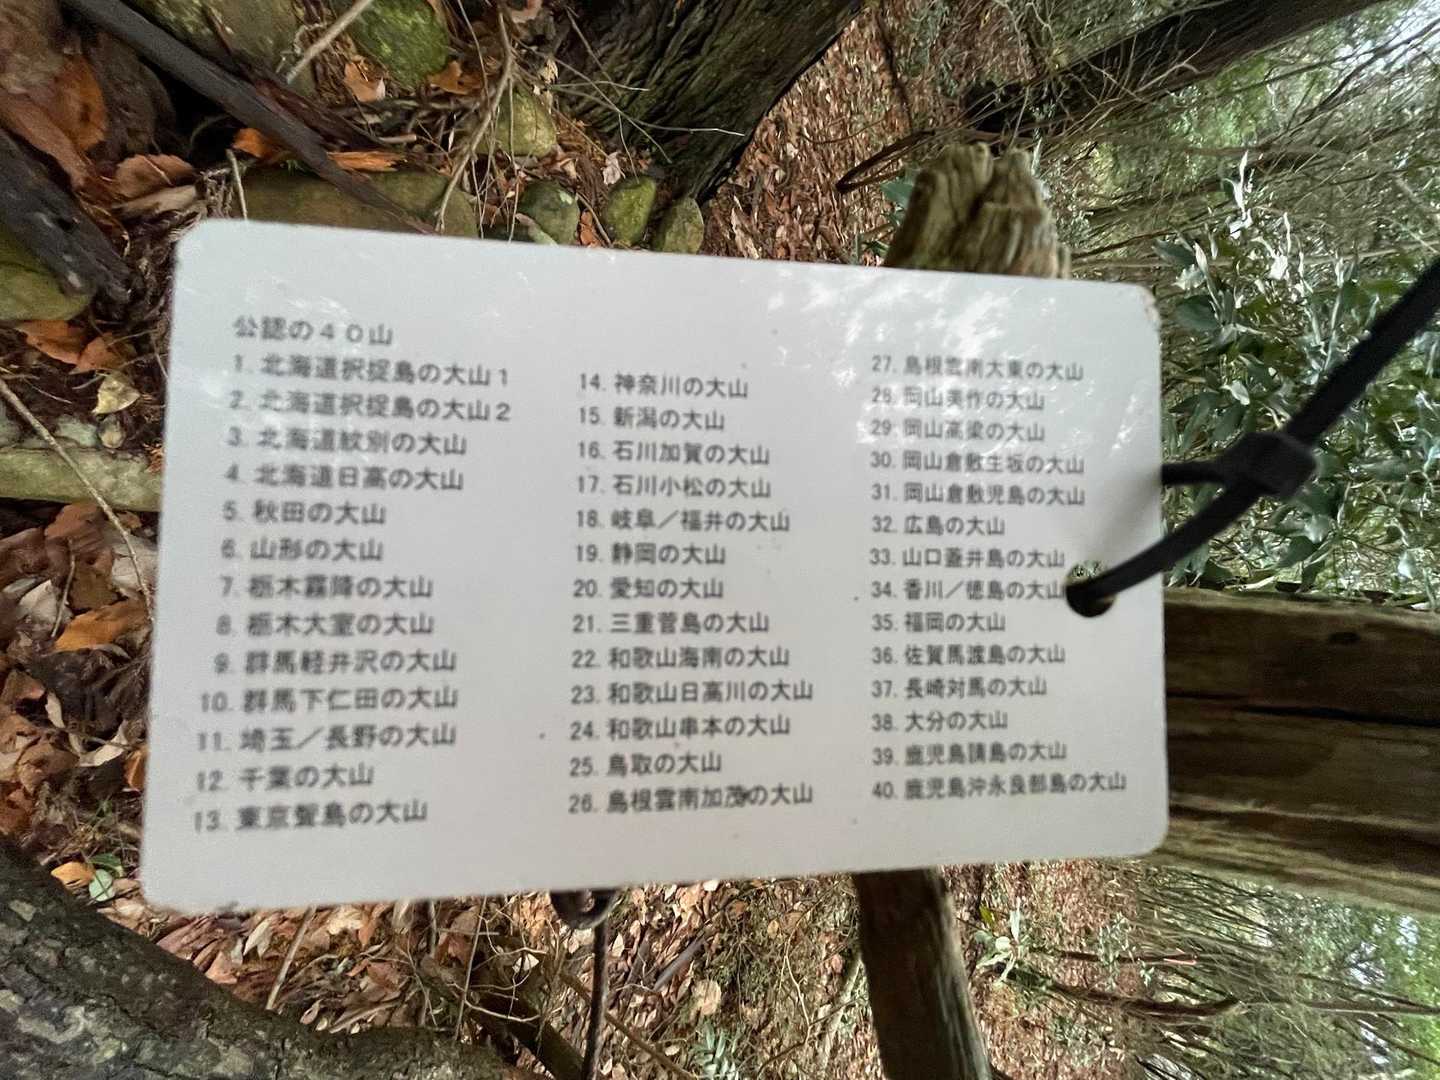 公認の４０山
1. 北海道択捉島の大山１
2. 北海道択捉島の大山２
3. 北海道紋別の大山
4. 北海道日高の大山
5. 秋田の大山
6. 山形の大山
7. 栃木霧降の大山
8. 栃木大室の大山
9. 群馬軽井沢の大山
10. 群馬下仁田の大山
11. 埼玉／長野の大山
12. 千葉の大山
13. 東京聟島の大山
14. 神奈川の大山
15. 新潟の大山
16. 石川加賀の大山
17. 石川小松の大山
18. 岐阜／福井の大山
19. 静岡の大山
20. 愛知の大山
21. 三重菅島の大山
22. 和歌山海南の大山
23. 和歌山日高川の大山
24. 和歌山串本の大山
25. 鳥取の大山
26. 島根雲南加茂の大山
27. 島根雲南大東の大山
28. 岡山美作の大山
29. 岡山高梁の大山
30. 岡山倉敷生坂の大山
31. 岡山倉敷児島の大山
32. 広島の大山
33. 山口蓋井島の大山
34. 香川／徳島の大山
35. 福岡の大山
36. 佐賀馬渡島の大山
37. 長崎対馬の大山
38. 大分の大山
39. 鹿児島諸島の大山
40. 鹿児島沖永良部島の大山